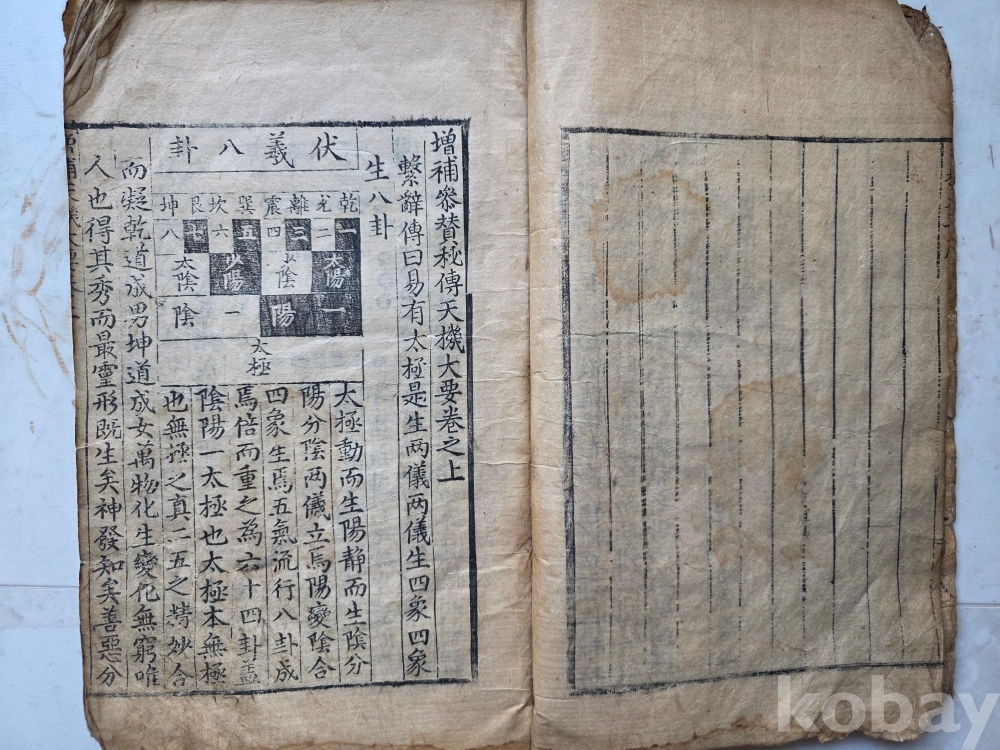 增補參贊秘傳天機大要卷之上
繫辭傳曰易有太極是生兩儀兩儀生四象四象
生八卦
伏羲八卦
乾兌離震巽坎艮坤
一二三四五六七八
太陽少陰少陽太陰
陽陰
太極
太極動而生陽静而生陰分
陽分陰两儀立焉陽變陰合
四象生焉五氣流行八卦成
焉倍而重之為六十四卦蓋
陰陽一太極也太極本無極
也無極之真二五之精妙合
而凝乾道成男坤道成女萬物化生變化無窮唯
人也得其秀而最靈形既生矣神發知矣善惡分
kobay